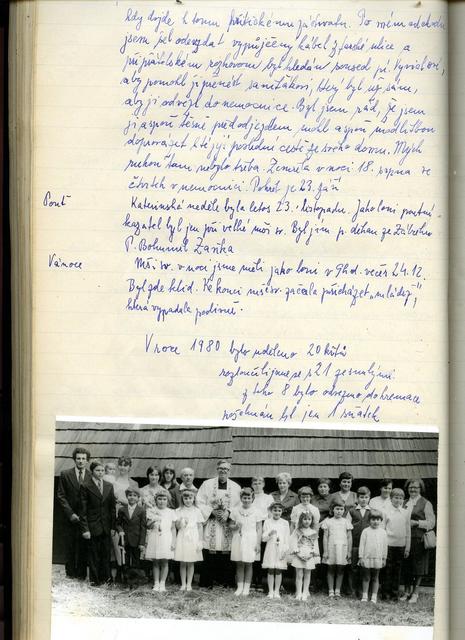 kdy dojde k tomu kritickému záchvatu. Po mém odchodu
jsem šel odevzdat vypůjčený kabel z farské ulice a
při přátelském rozhovoru byl hledán soused pí.
aby pomohl ji přenést sanitákovi, který byl už sám,
aby ji odvezl do nemocnice. Byl jsem rád, že jsem
ji aspoň těsně před odjezdem mohl aspoň modlitbou
doprovázet k její poslední cestě ze svého domu. Mých
rukou tam nebylo třeba. Zemřela v noci 18. srpna ve
čtvrtek v nemocnici. Pohřeb je 23. září
Pouť Kateřinská neděle byla letos 23. listopadu. Jako loni poutní
kazatel byl jen při velké mši sv. Byl jím p. děkan ze
P. Bohumil
Vánoce Mši sv. v noci jsme měli jako loni v 9 hod. večer 24.12.
Byl zde klid. Ke konci mše sv. začala přicházet „mládež",
která vypadala podivně.
V roce 1980 bylo uděleno 20 křtů
rozloučili jsme se s 21 zesnulými
z toho 8 bylo odvezeno do kremace
byl jen 1 sňatek